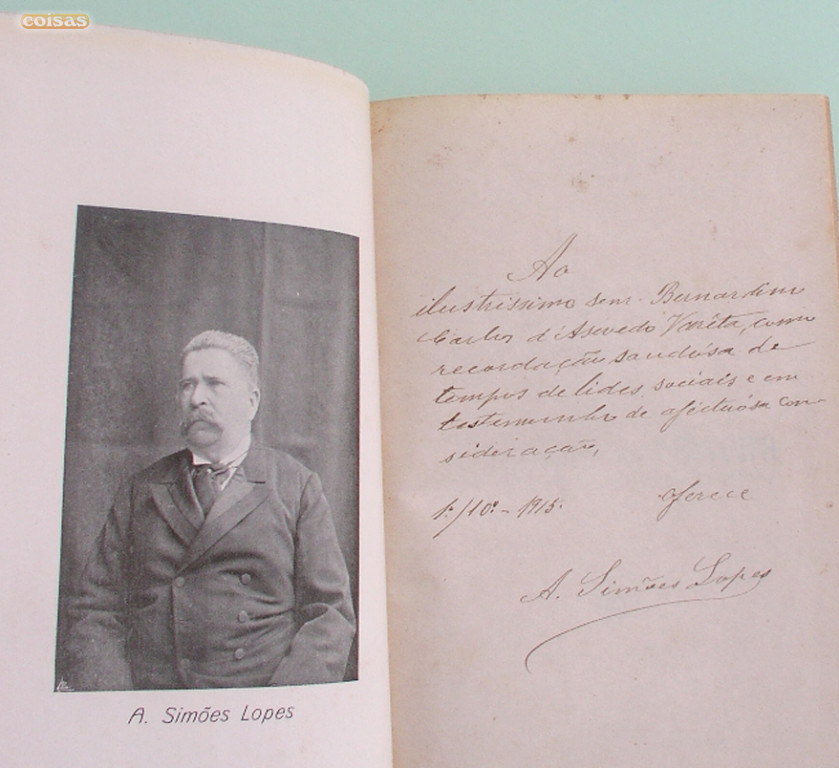 coisas
A. Simões Lopes
Ao
ilustrissimo senr. Bernardim
Carlos d'Asevedo Varêta, como
recordação saudósa de
tempos de lides sociais e em
testemunho de afectuósa con-
sideração,
oferece
1º/10º-1915.
A. Simões Lopes